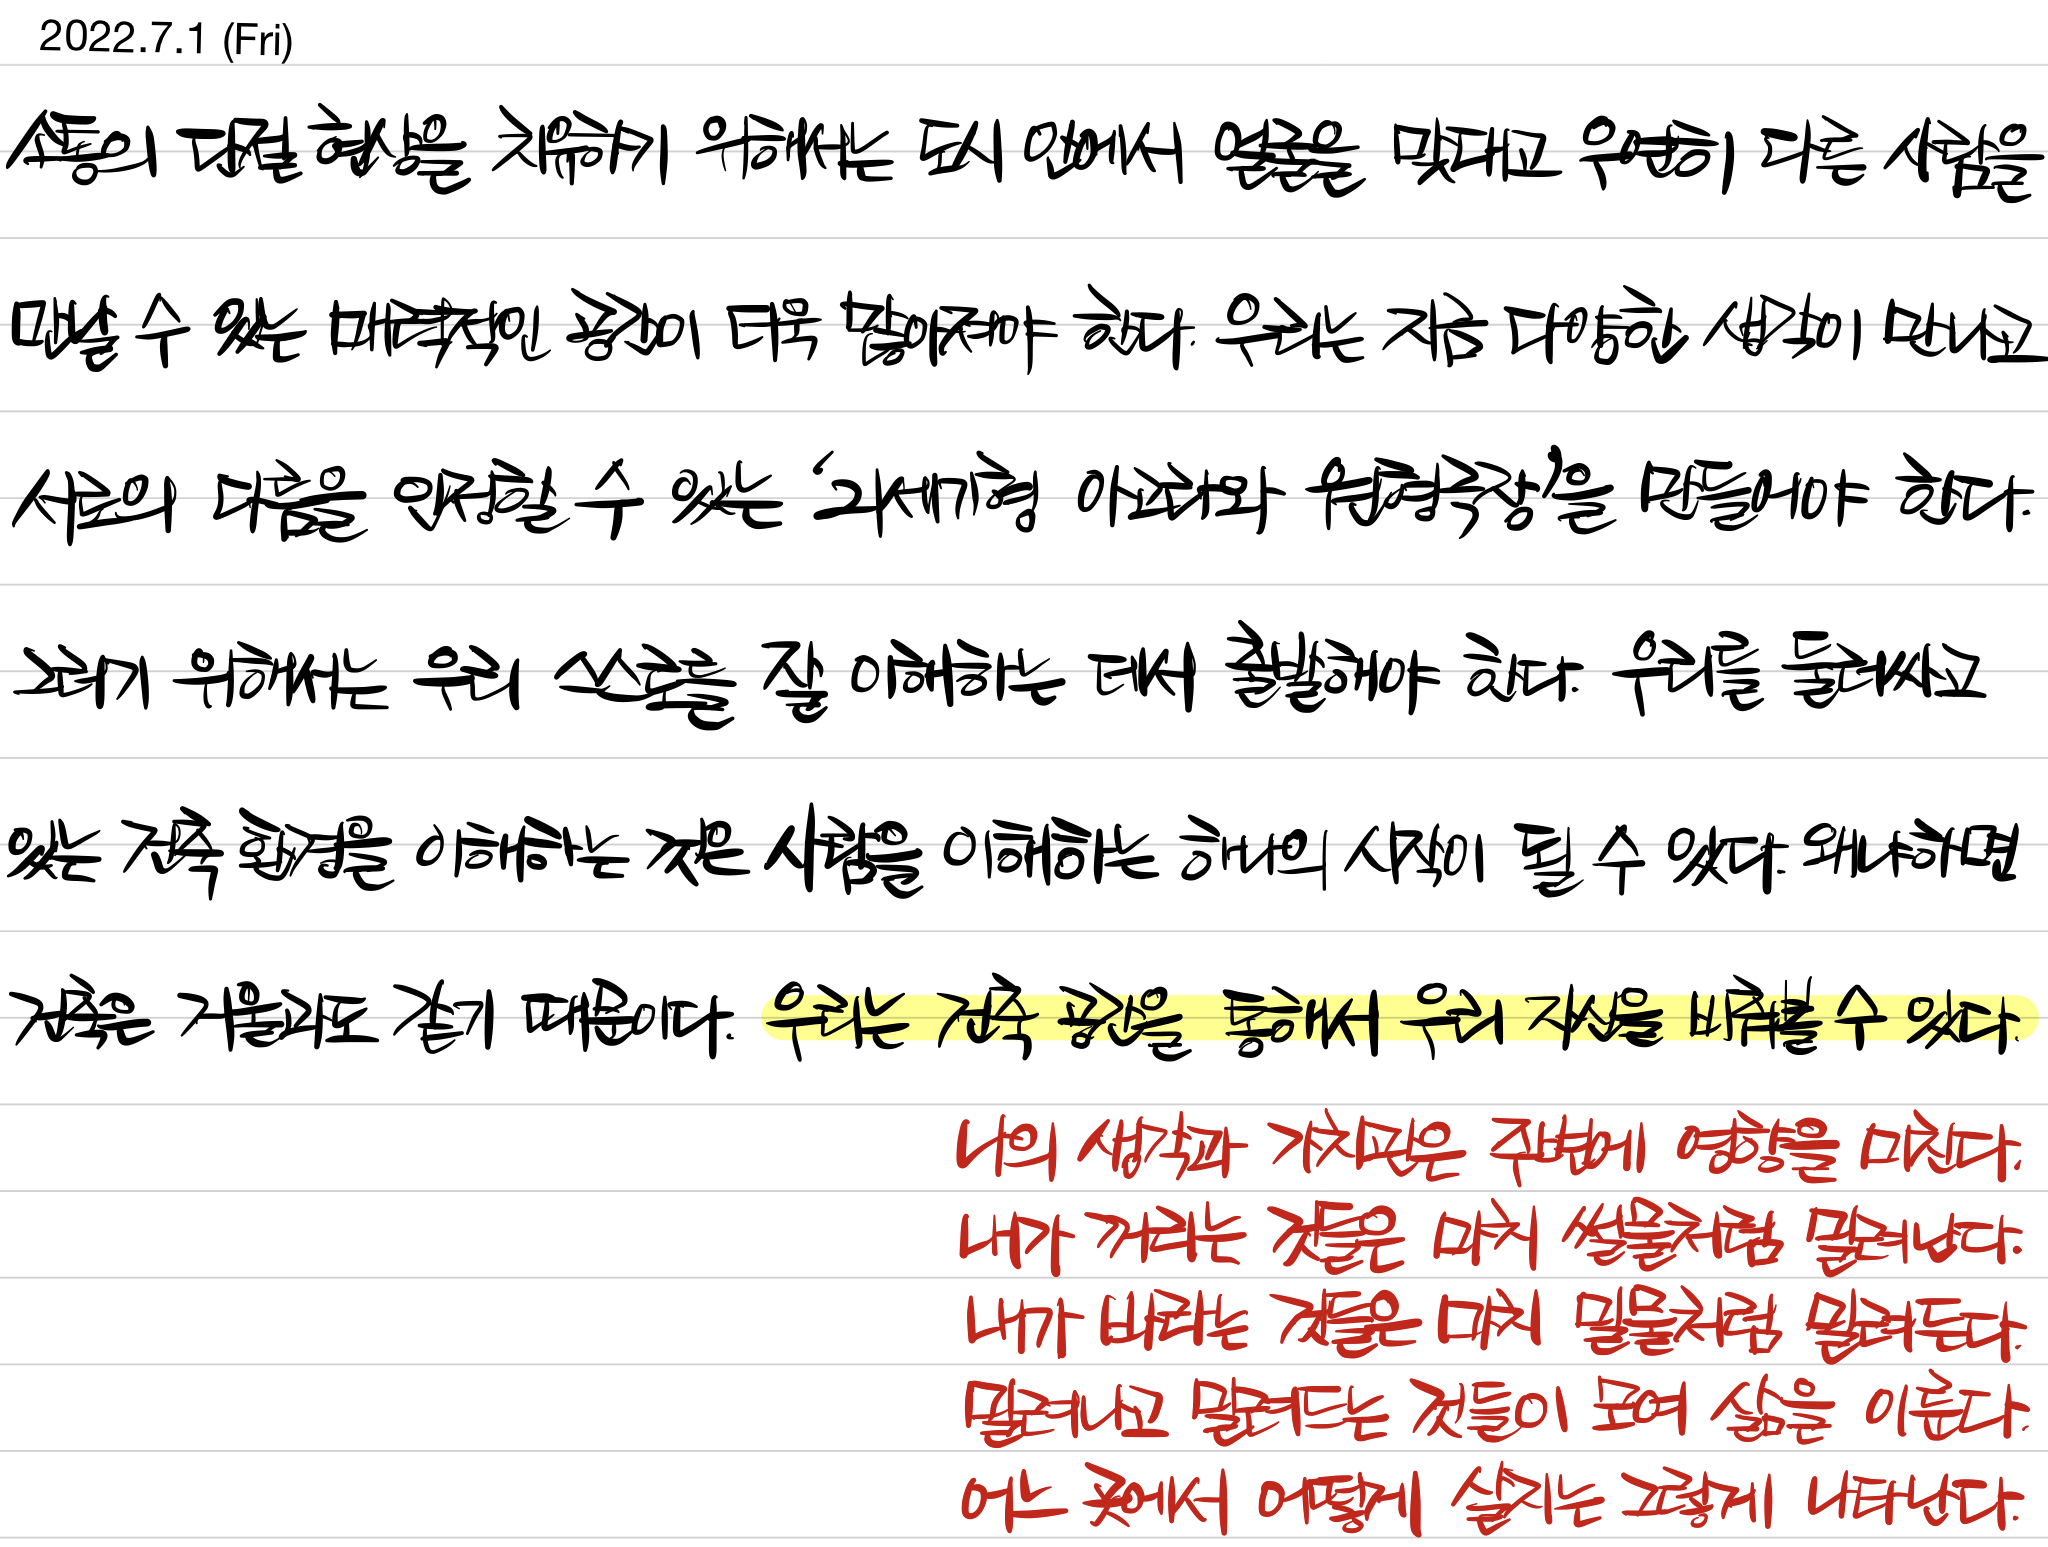 2022.7.1 (Fri)
소통의 단절 현상을 치유하기 위해서는 도시 안에서 얼굴을 맞대고 우연히 다른 사람을
만날 수 있는 매력적인 공간이 더욱 많아져야 한다. 우리는 지금 다양한 생각이 만나고
서로의 다름을 인정할 수 있는 '21세기형 아고라와 원형극장'을 만들어야 한다.
그러기 위해서는 우리 스스로를 잘 이해하는 데서 출발해야 한다. 우리를 둘러싸고
있는 건축 환경을 이해하는 것은 사람을 이해하는 하나의 시작이 될 수 있다. 왜냐하면
건축은 거울과도 같기 때문이다. 우리는 건축 공간을 통해서 우리 자신을 비춰볼 수 있다.
나의 생각과 가치관은 주변에 영향을 미친다.
내가 꺼리는 것들은 마치 썰물처럼 밀려난다.
내가 바라는 것들은 마치 밀물처럼 밀려든다.
밀려나고 밀려드는 것들이 모여 삶을 이룬다.
어느 곳에서 어떻게 살지는 그렇게 나타난다.